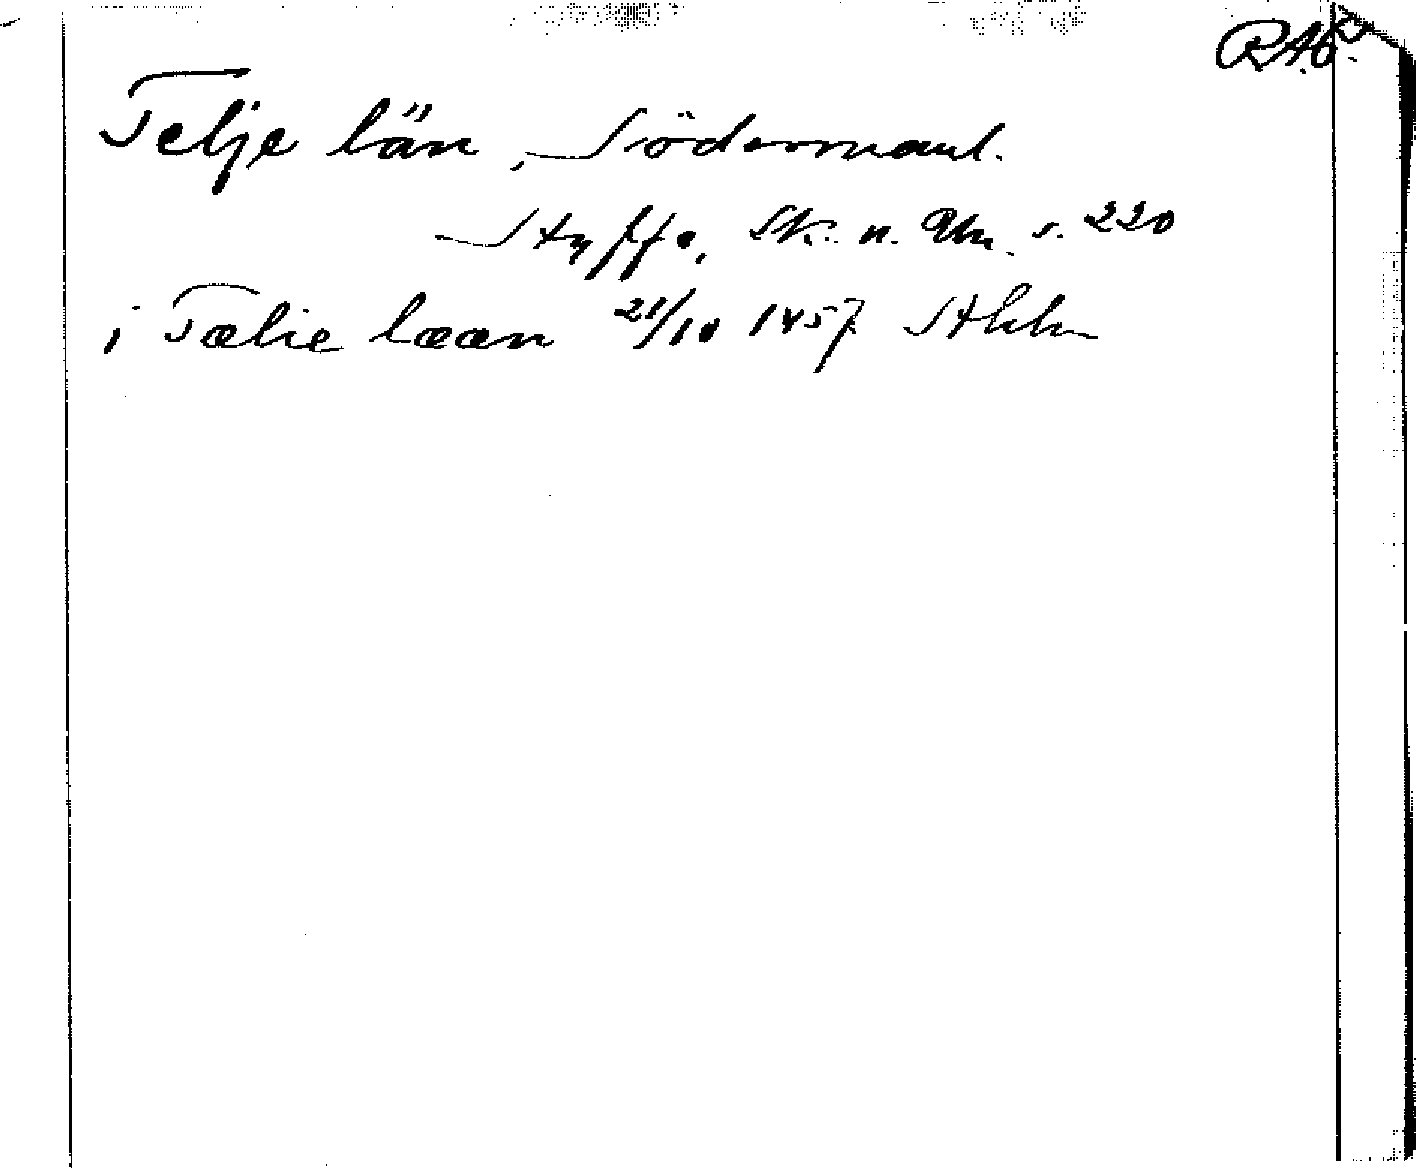 RAö.
Telje län, Södermanl.
Styffe, Sk. u. Un. s. 220
i Tælie lææn 21/10 1457 Sthlm